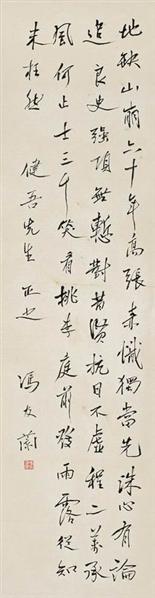 地缺山崩六十年高張赤幟獨當先誅心有論
追良史強項無慙對昔賢抗日不虛程二萬承
風何止士三千笑看桃李庭前發雨露從知
未枉然
健吾先生 正之
馮友蘭